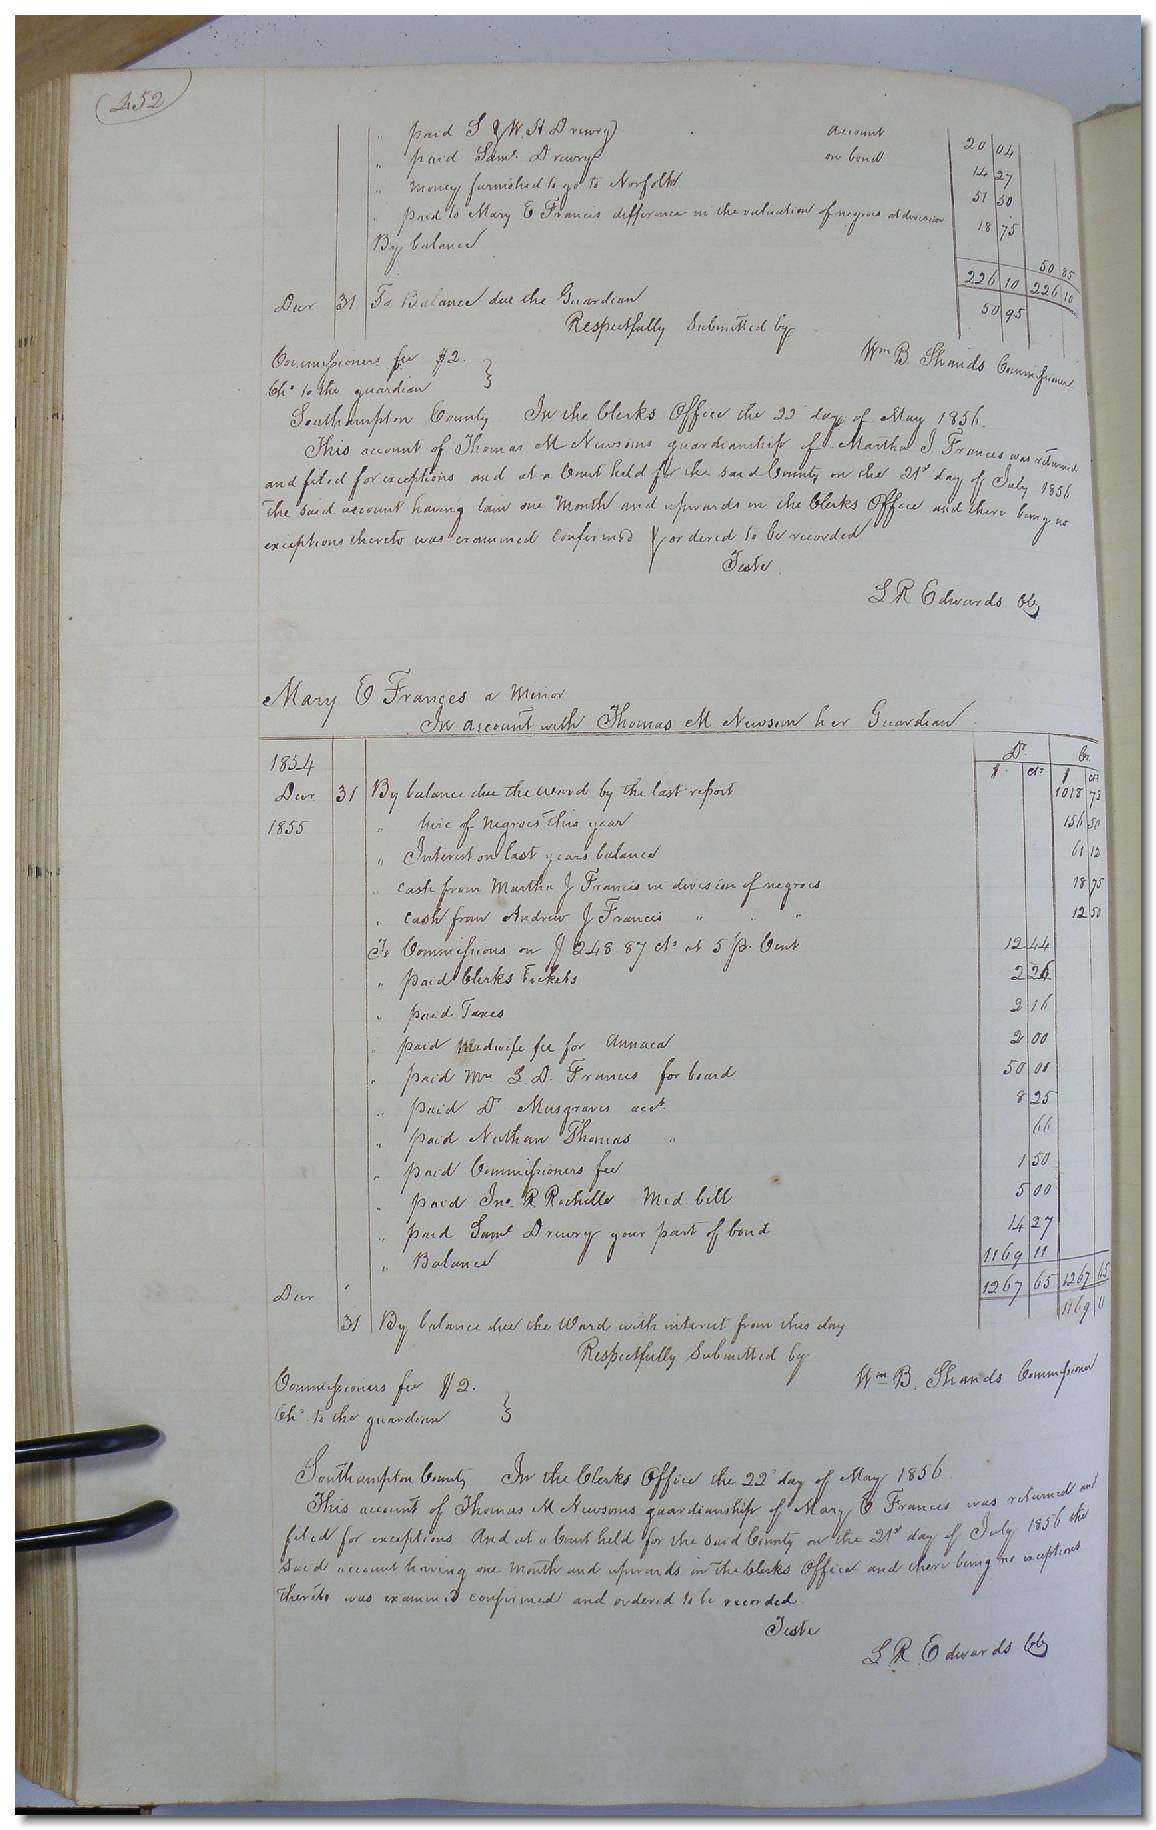 452
" paid S & W. H Drewry account 20 04
" paid Saml. Drewry on bond 14 27
" money furnished to go to Norfolk 51 50
" paid to Mary E Francis difference in the valuation of negroes at division 18 75
By balance 50 85
226 10 226 10
Decr 31 To Balance due the Guardian 50 95
Respectfully Submitted by
Wm B. Shands Commissioner
Commissioners fee $2.
Chd. to the guardian
Southampton County In the Clerks Office the 22d day of May 1856.
This account of Thomas M Newsoms guardianship of Martha J Frances was returned
and filed for exceptions and at a Court held for the said County on the 21st day of July 1856
the said account having lain one Month and upwards in the Clerks Office and there being no
exceptions thereto was examined confirmed & ordered to be recorded
Teste
L R Edwards Clk
Mary E Frances a Minor
In account with Thomas M Newsom her Guardian
1854 Dr. Cr.
$ cts $ cts
Decr 31 By balance due the ward by the last report 1018 78
1855 " hire of Negroes this year 156 50
" Interest on last years balance 61 12
" cash from Martha J Francis in division of negroes 18 75
" cash from Andrew J Francis " " " 12 50
To Commissions on $248 87 cts at 5 pr. Cent 12 44
" paid Clerks Tickets 2 26
" paid Taxes 2 16
" paid Midwife fee for Annaca 2 00
" paid Mrs S D. Frances for board 50 00
" paid Dr Musgraves acct. 8 25
" paid Nathan Thomas " 66
" paid Commissioners fee 1 50
" paid Jno. R Rochelle Med. bill 5 00
" paid Saml Drewry your part of bond 14 27
" Balance 1169 11
1267 65 1267 65
Decr "
31 By balance due the Ward with interest from this day 1169 11
Respectfully Submitted by
Wm B. Shands Commissioner
Commissioners fee $2.
Chd. to the guardian
Southampton County In the Clerks Office the 22d day of May 1856.
This account of Thomas M Newsoms guardianship of Mary E Frances was returned and
filed for exceptions And at a Court held for the said County on the 21st day of July 1856 the
said account having one Month and upwards in the Clerks Office and there being no exceptions
thereto was examined confirmed and ordered to be recorded
Teste
L. R. Edwards Clk